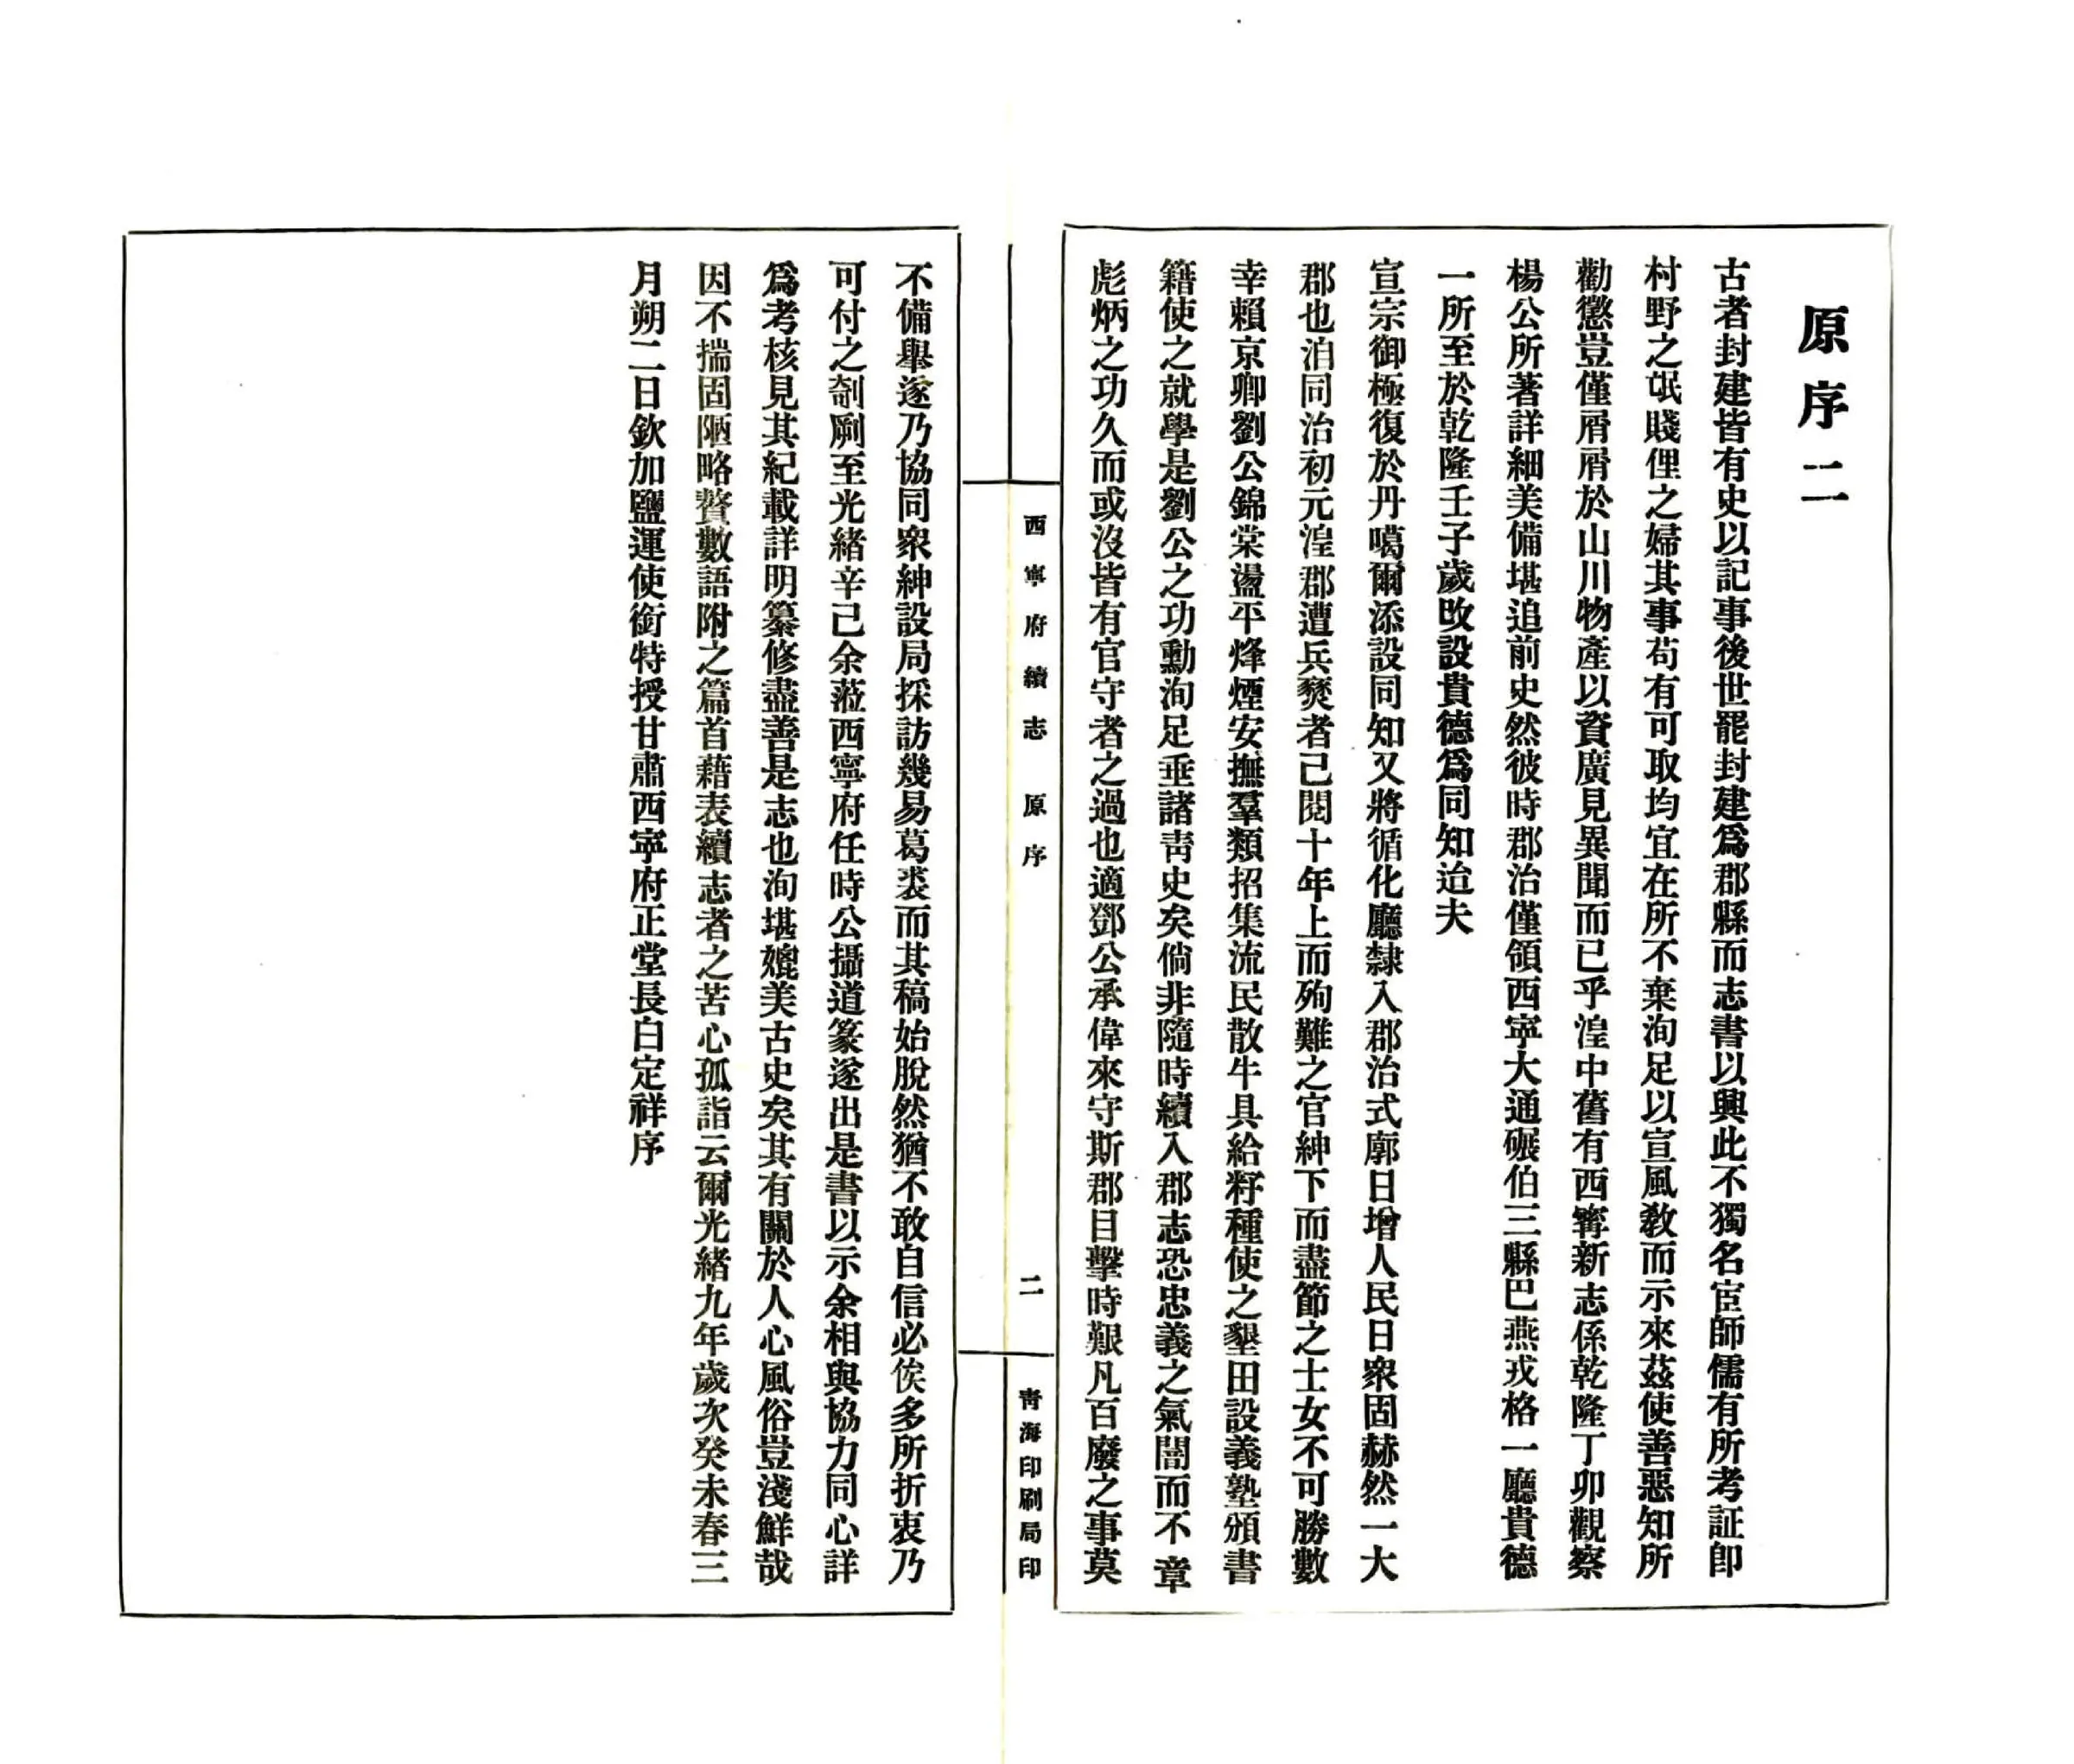 原序二
古者封建皆有史以記事後世罷封建爲郡縣而志書以興此不獨名宦師儒有所考証卽
村野之氓賤俚之婦其事苟有可取均宜在所不棄洵足以宣風敎而示來茲使善惡知所
勸懲豈僅屑屑於山川物產以資廣見異聞而已乎湟中舊有西甯新志係乾隆丁卯觀察
楊公所著詳細美備堪追前史然彼時郡治僅領西寧大通碾伯三縣巴燕戎格一廳貴德
一所至於乾隆壬子歲改設貴德爲同知迨夫
宣宗御極復於丹噶爾添設同知又將循化廳隸入郡治式廓日增人民日衆固赫然一大
郡也洎同治初元湟郡遭兵燹者己閱十年上而殉難之官紳下而盡節之士女不可勝數
幸賴京卿劉公錦棠盪平烽煙安撫羣類招集流民散牛具給籽種使之墾田設義塾頒書
籍使之就學是劉公之功勳洵足垂諸靑史矣倘非隨時續入郡志恐忠義之氣闇而不章
彪炳之功久而或沒皆有官守者之過也適鄧公承偉來守斯郡目擊時艱凡百廢之事莫
西寧府續志 原序
二
靑海印刷局印
不備舉遂乃協同衆紳設局採訪幾易葛裘而其稿始脫然猶不敢自信必俟多所折衷乃
可付之剞劂至光緒辛己余蒞西寧府任時公攝道篆遂出是書以示余相與協力同心詳
爲考核見其紀載詳明纂修盡善是志也洵堪媲美古史矣其有關於人心風俗豈淺鮮哉
因不揣固陋略贅數語附之篇首藉表續志者之苦心孤詣云爾光緒九年歲次癸未春三
月朔二日欽加鹽運使銜特授甘肅西寧府正堂長白定祥序